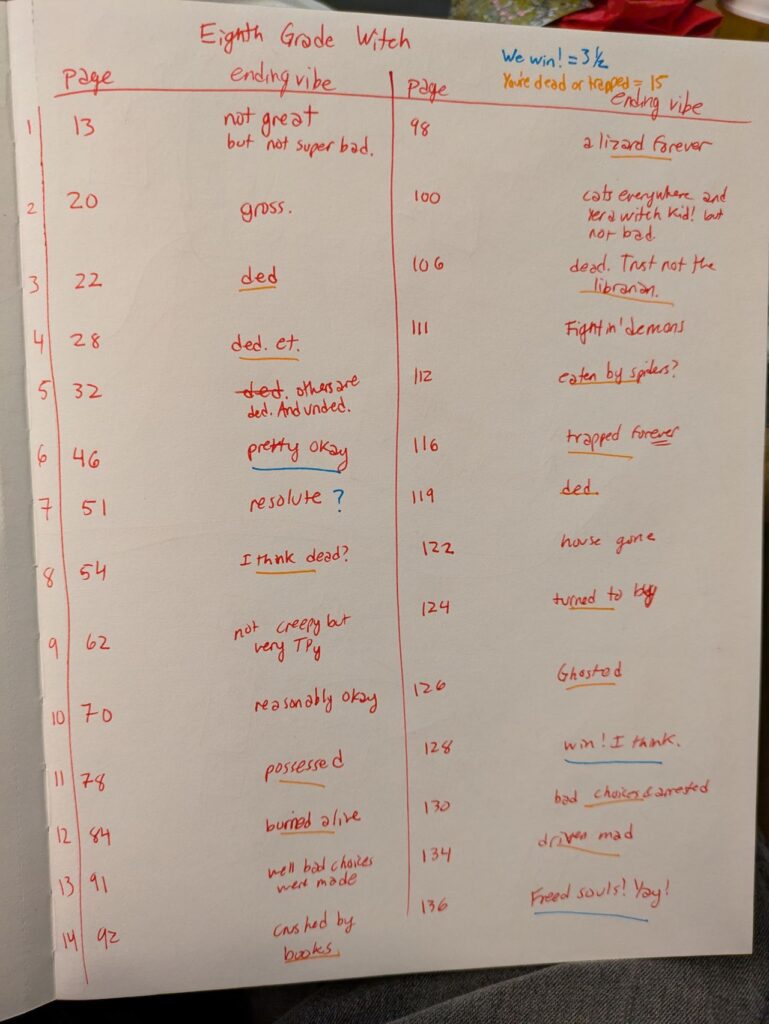 Eighth Grade Witch
We win! = 3 1/2
You're dead or trapped = 15
page ending vibe
1 13 not great
but not super bad.
2 20 gross.
3 22 ded
4 28 ded. et.
5 32 ded. others are
ded. And unded.
6 46 pretty okay
7 51 resolute ?
8 54 I think dead?
9 62 not creepy but
very TPy
10 70 reasonably okay
11 78 possessed
12 84 burried alive
13 91 well bad choices
were made
14 92 crushed by
books.
page ending vibe
98 a lizard forever
100 cats everywhere and
yer a witch kid! but
not bad.
106 dead. Trust not the
librarian.
111 Fightin' demons
112 eaten by spiders?
116 trapped forever
119 ded.
122 house gone
124 turned to bug
126 Ghosted
128 win! I think.
130 bad choices & arrested
134 driven mad
136 Freed souls! Yay!